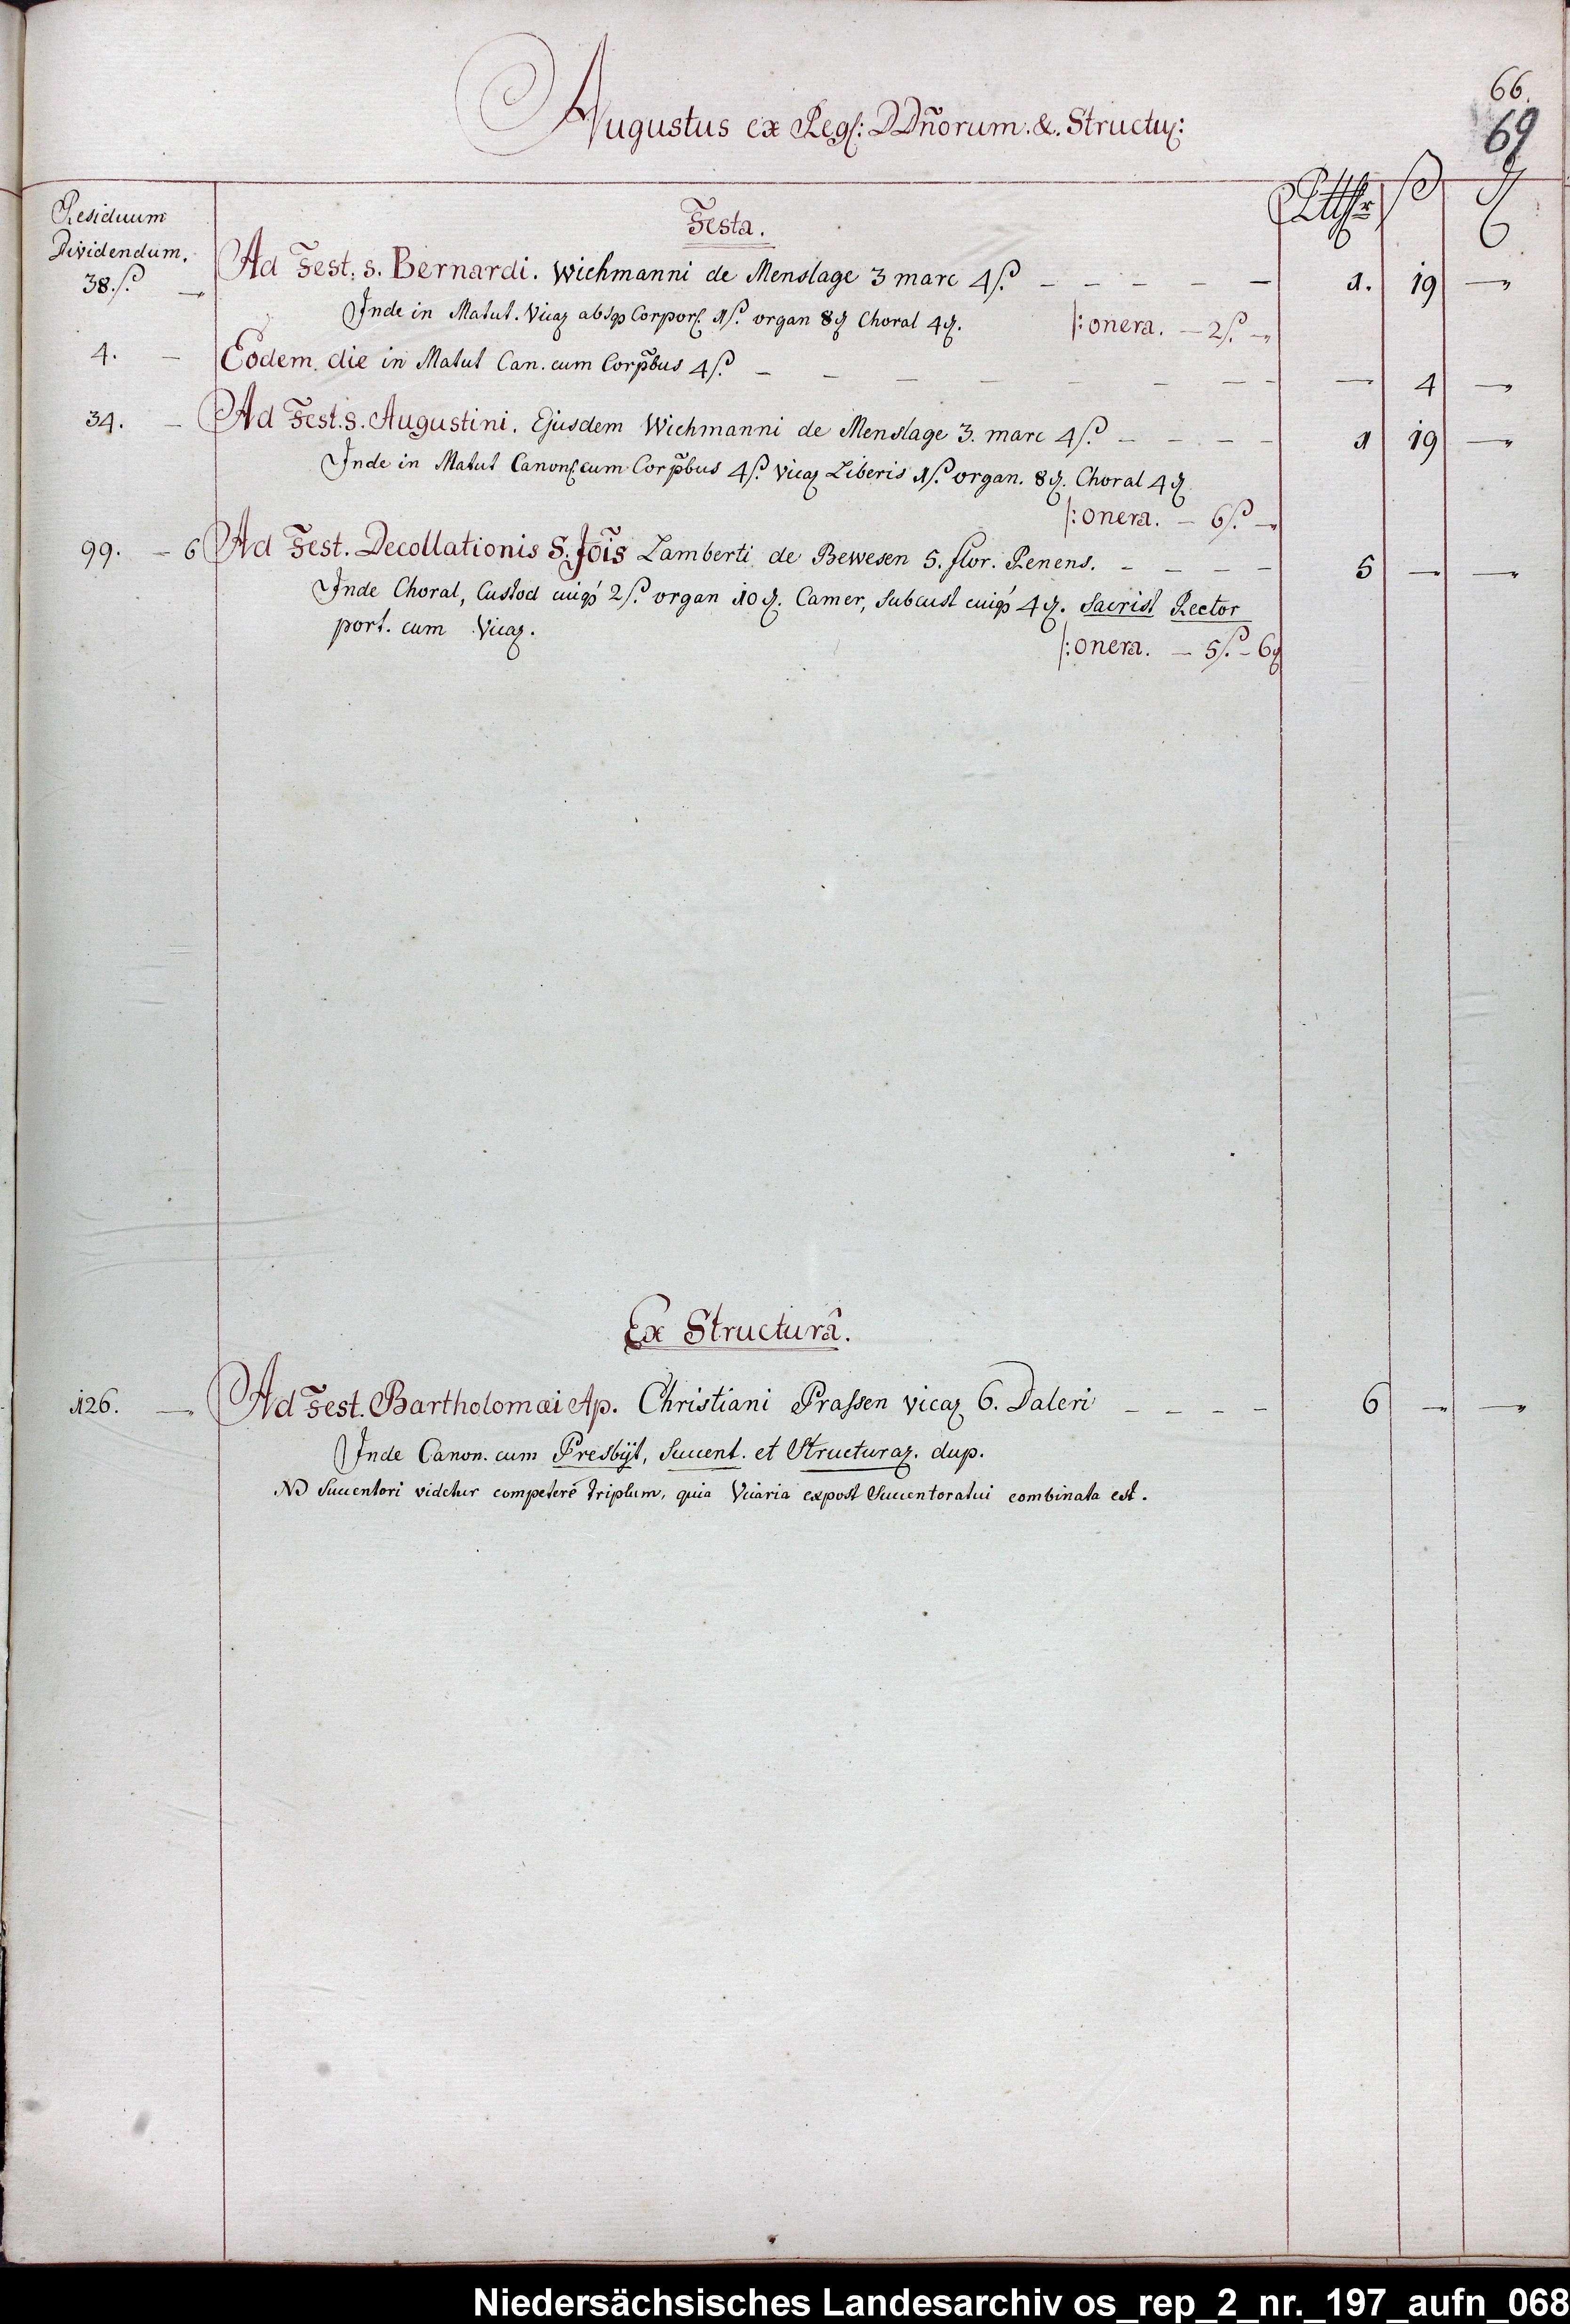 66.
69
Augustus ex Regs: DDñorum. &. Structu:
Residuum Dividendum.
Festa.
Rtthr ß ₰
38. ß. — Ad Fest. S. Bernardi. Wichmanni de Menslage 3 marc 4 ß. — — — — — 1. 19 —
Inde in Matut. Vicaz absqz Corpors 1 ß. organ 8 ₰ Choral 4 ₰. /: onera. — 2 ß. —
4. — Eodem die in Matut Can. cum Corp̃bus 4 ß. — — — — — — — — — 4 —
34. — Ad Fest. S. Augustini. Ejusdem Wichmanni de Menslage 3. marc 4 ß. — — — — 1 19 —
Inde in Matut Canons cum Corp̃bus 4 ß. Vicaz Liberis 1 ß. organ. 8 ₰. Choral 4 ₰
/: onera. — 6 ß. —
99. — 6 Ad Fest. Decollationis S. Jõis Lamberti de Bewesen 5. flor. Renens. — — — — 5 — —
Inde Choral, Custod cuiqz 2 ß. organ 10 ₰. Camer, Subcust cuiqz 4 ₰. Sacrist Rector
port. cum Vicaz.
/: onera. — 5 ß. — 6 ₰
Ex Structurâ.
126. — Ad Fest. Bartholomæi Ap. Christiani Prassen vicaz 6. Daleri — — — — 6 — —
Inde Canon. cum Presbÿt, Succent. et Structuraz. dup.
NB Succentori videtur competere triplum, quia Vicaria expost Succentoratui combinata est.
Niedersächsisches Landesarchiv os_rep_2_nr._197_aufn_068